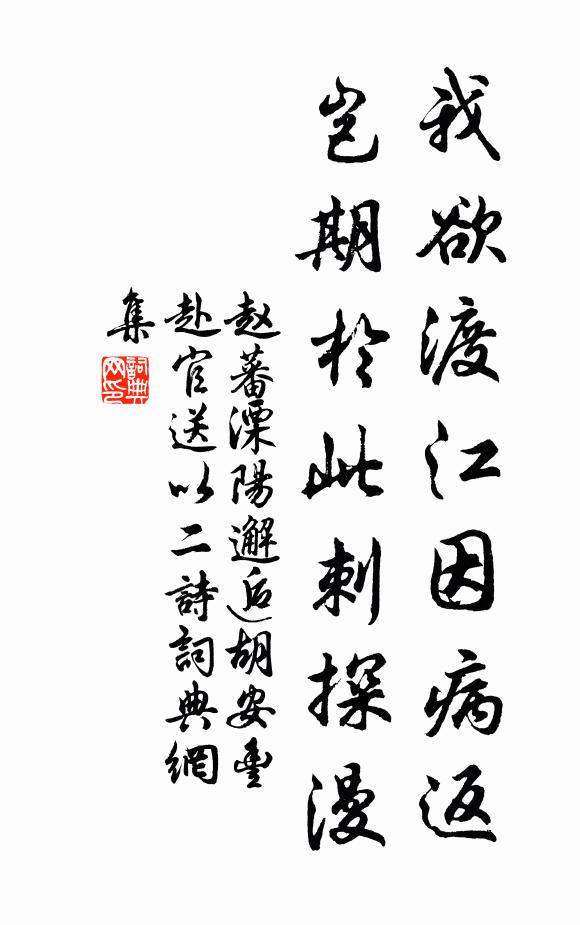 我欲渡江因病返
岂期於此刺探漫
赵蕃溧陽邂逅胡安豐
赴官送以二詩詞典網
集
詞典网印